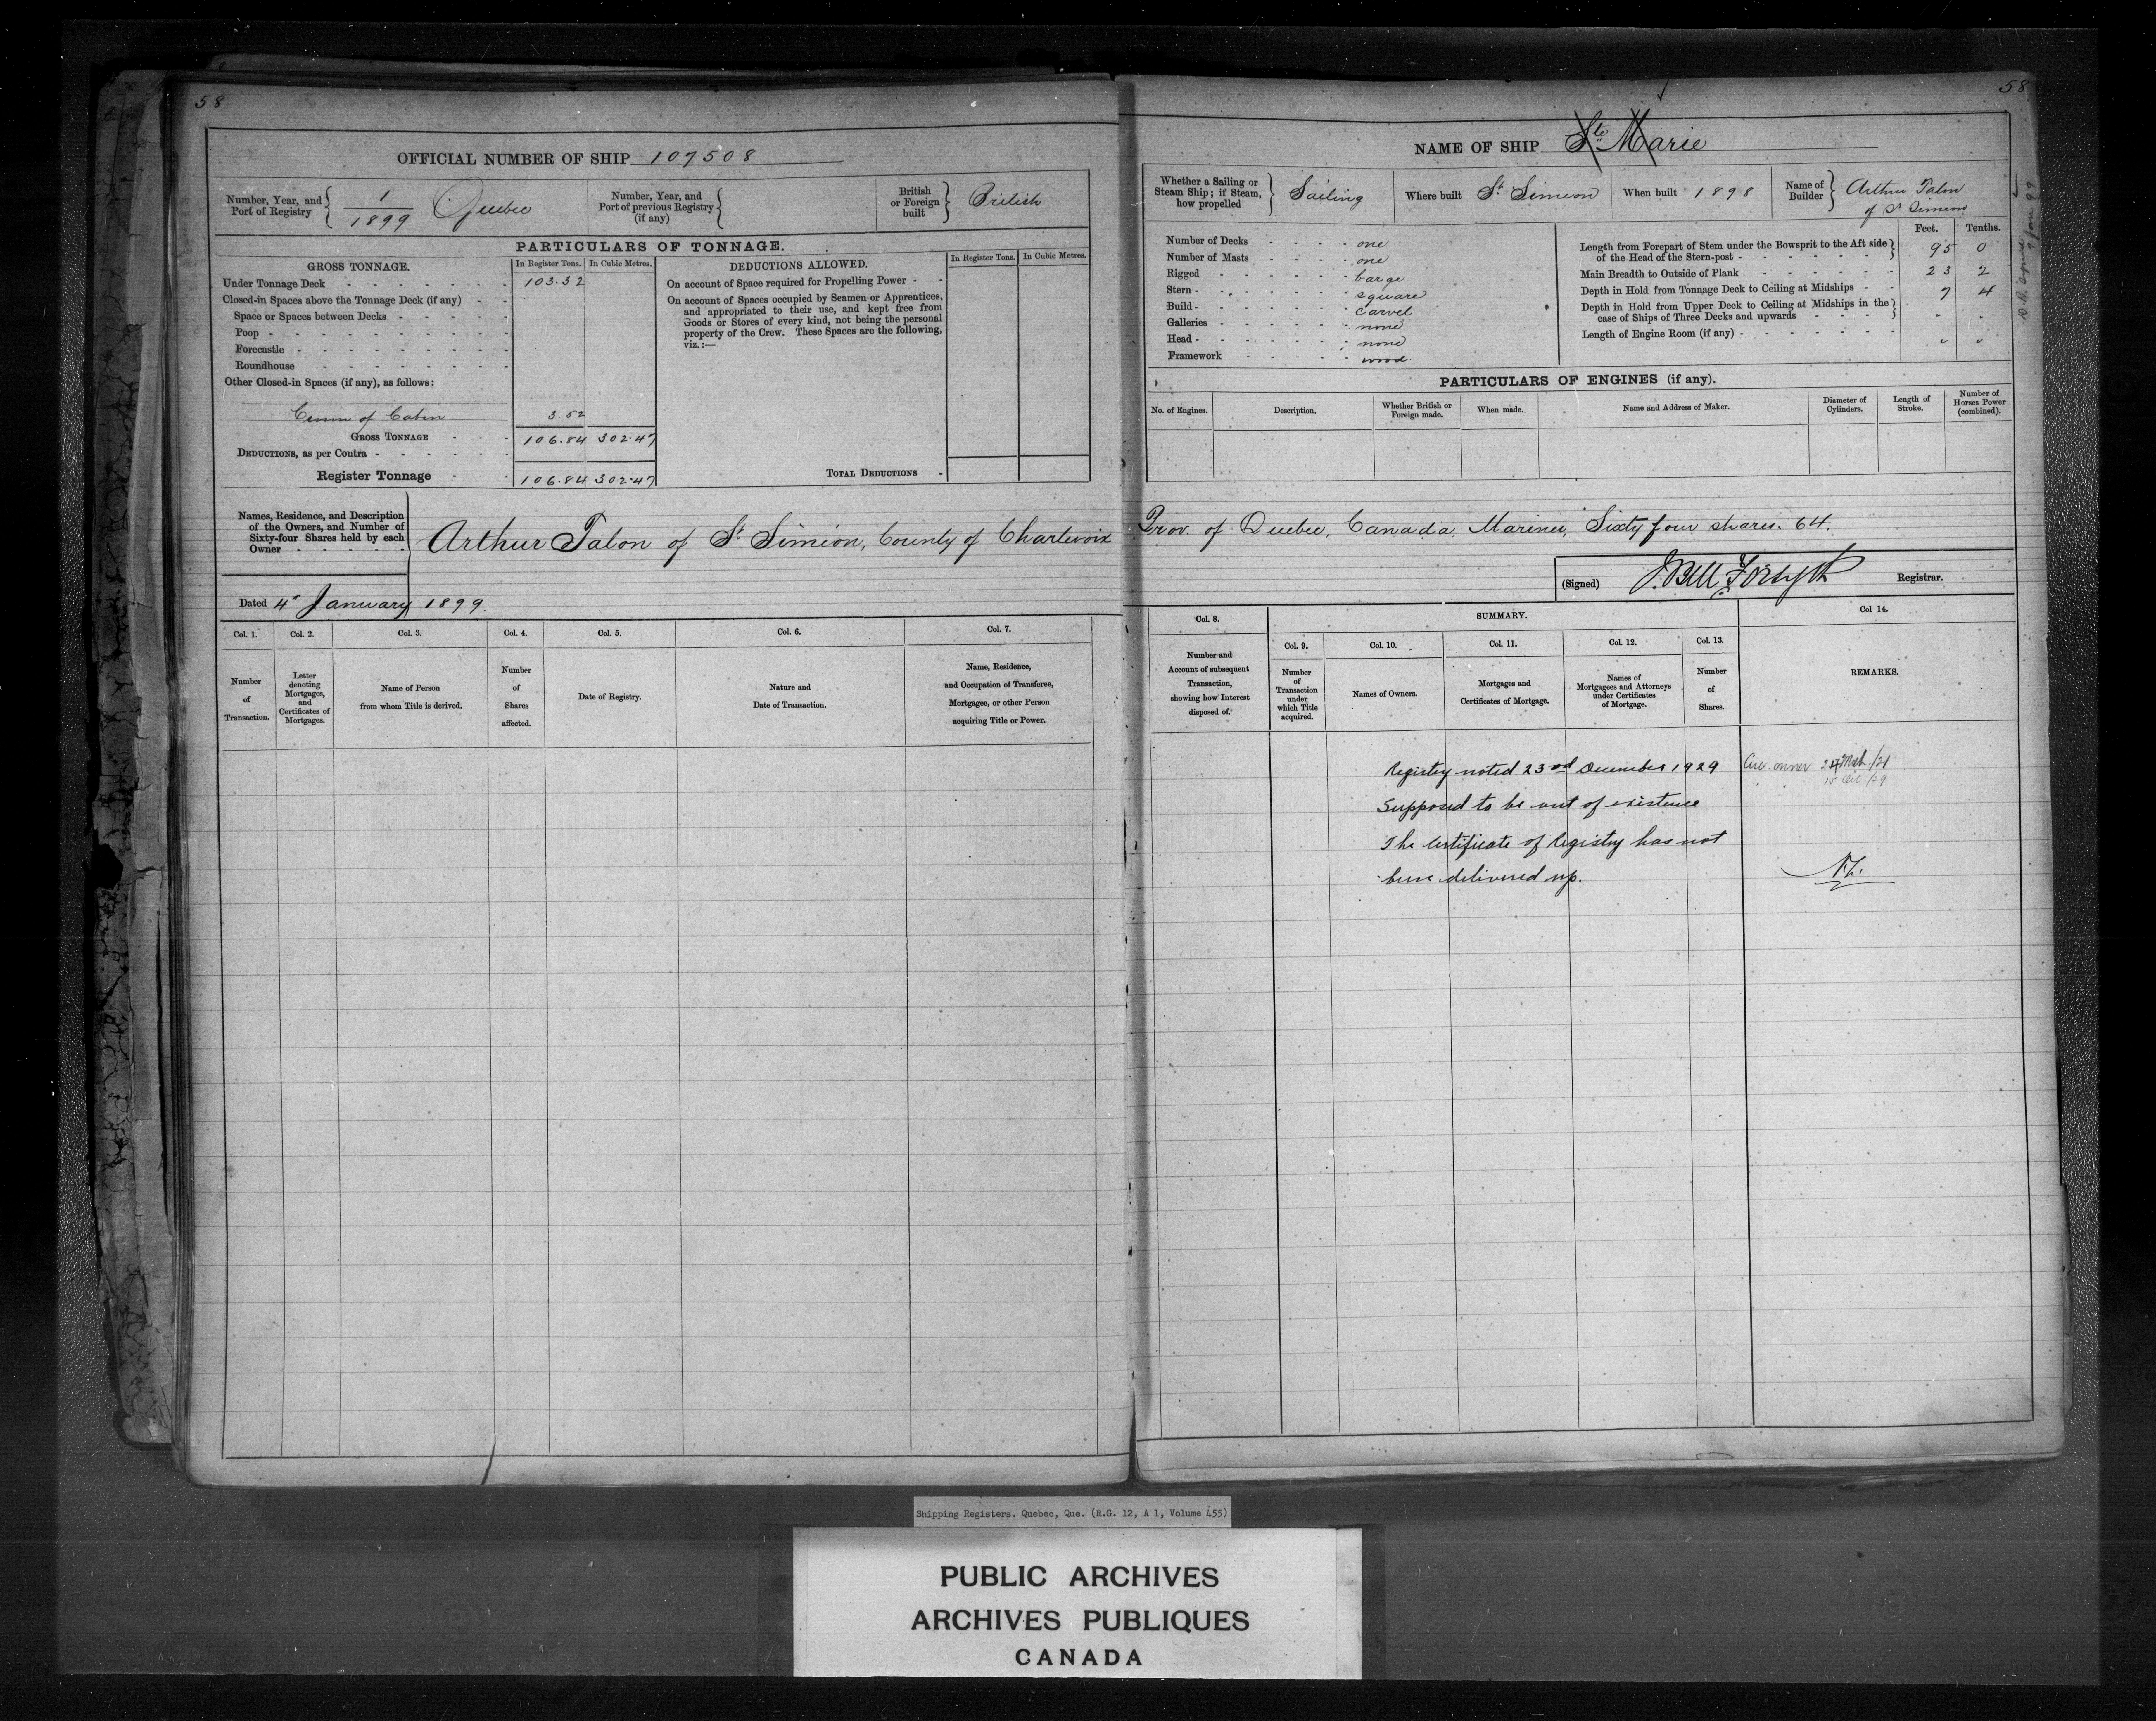 58
OFFICIAL NUMBER OF SHIP 107508
Number, Year, and Port of Registry 1/1899 Quebec
Number, Year, and Port of previous Registry (if any)
British or Foreign built British
PARTICULARS OF TONNAGE.
GROSS TONNAGE. In Register Tons. In Cubic Metres.
Under Tonnage Deck 103.32
Closed-in Spaces above the Tonnage Deck (if any)
Space or Spaces between Decks
Poop
Forecastle
Roundhouse
Other Closed-in Spaces (if any), as follows:
of Cabin 3.52
GROSS TONNAGE 106.84 302.47
DEDUCTIONS, as per Contra
Register Tonnage 106.84 302.47
DEDUCTIONS ALLOWED. In Register Tons. In Cubic Metres.
On account of Space required for Propelling Power
On account of Spaces occupied by Seamen or Apprentices,
and appropriated to their use, and kept free from
Goods or Stores of every kind, not being the personal
property of the Crew. These Spaces are the following,
viz.:—
TOTAL DEDUCTIONS
58
NAME OF SHIP Ste Marie
Whether a Sailing or Steam Ship; if Steam, how propelled Sailing
Where built St Simeon
When built 1898
Name of Builder Arthur Talon
of St Simeon
Number of Decks one
Number of Masts one
Rigged barge
Stern square
Build carvel
Galleries none
Head none
Framework wood
Feet. Tenths.
Length from Forepart of Stem under the Bowsprit to the Aft side
of the Head of the Stern-post 95 0
Main Breadth to Outside of Plank 23 2
Depth in Hold from Tonnage Deck to Ceiling at Midships 7 4
Depth in Hold from Upper Deck to Ceiling at Midships in the
case of Ships of Three Decks and upwards " "
Length of Engine Room (if any) " "
PARTICULARS OF ENGINES (if any).
No. of Engines. Description. Whether British or Foreign made. When made. Name and Address of Maker. Diameter of Cylinders. Length of Stroke. Number of Horses Power (combined).
Names, Residence, and Description
of the Owners, and Number of
Sixty-four Shares held by each
Owner
Arthur Talon of St Siméon, County of Charlevoix Prov. of Quebec, Canada, Mariner, Sixty four shares. 64.
(Signed) J. Bell Forsyth Registrar.
Dated 4th January 1899.
Col. 1. Col. 2. Col. 3. Col. 4. Col. 5. Col. 6. Col. 7.
Number of Transaction.
Letter denoting Mortgages, and Certificates of Mortgages.
Name of Person from whom Title is derived.
Number of Shares affected.
Date of Registry.
Nature and Date of Transaction.
Name, Residence, and Occupation of Transferee, Mortgagee, or other Person acquiring Title or Power.
Col. 8. SUMMARY. Col 14.
Col. 9. Col. 10. Col. 11. Col. 12. Col. 13.
Number and Account of subsequent Transaction, showing how Interest disposed of.
Number of Transaction under which Title acquired.
Names of Owners.
Mortgages and Certificates of Mortgage.
Names of Mortgagees and Attorneys under Certificates of Mortgage.
Number of Shares.
REMARKS.
Registry noted 23rd December 1929
Supposed to be out of existence
The Certificate of Registry has not
been delivered up.
owner 24 Mch /21
15 Dec /29
Shipping Registers. Quebec, Que. (R.G. 12, A 1, Volume 455)
PUBLIC ARCHIVES
ARCHIVES PUBLIQUES
CANADA